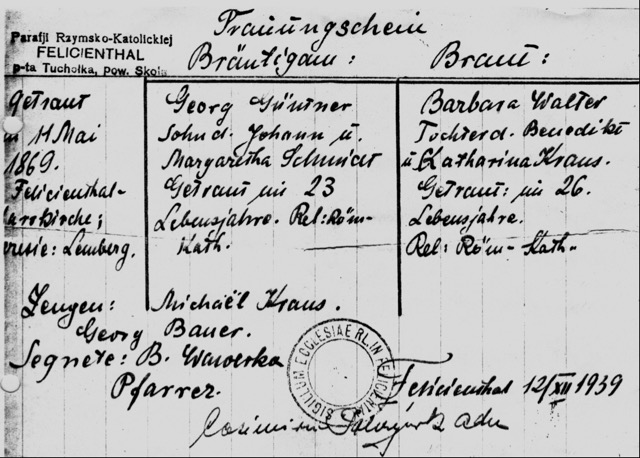 Trauungschein
Parafji Rzymsko-Katolickiej
FELICIENTHAL
p-ta Tucholka, pow. Skole
Bräutigam: Braut:
Getraut
am 11 Mai
1869.
Felicienthal-
Pfarrkirche;
Lemberg.
Georg Güntner
Sohn d. Johann u.
Margaretha Schmidt
Getraut im 23
Lebensjahre. Rel: Röm-
Kath.
Barbara Walter
Tochter d. Benedikt
u Katharina Kraus.
Getraut: im 26.
Lebensjahre.
Rel: Röm-Kath-
Zeugen: Michaël Kraus.
Georg Bauer.
Segnete: B. Wawerka
Pfarrer.
SIGILLUM ECCLESIAE R.L. IN FELICIENTHAL
Felicienthal 12/XII 1939
Casimirus adm